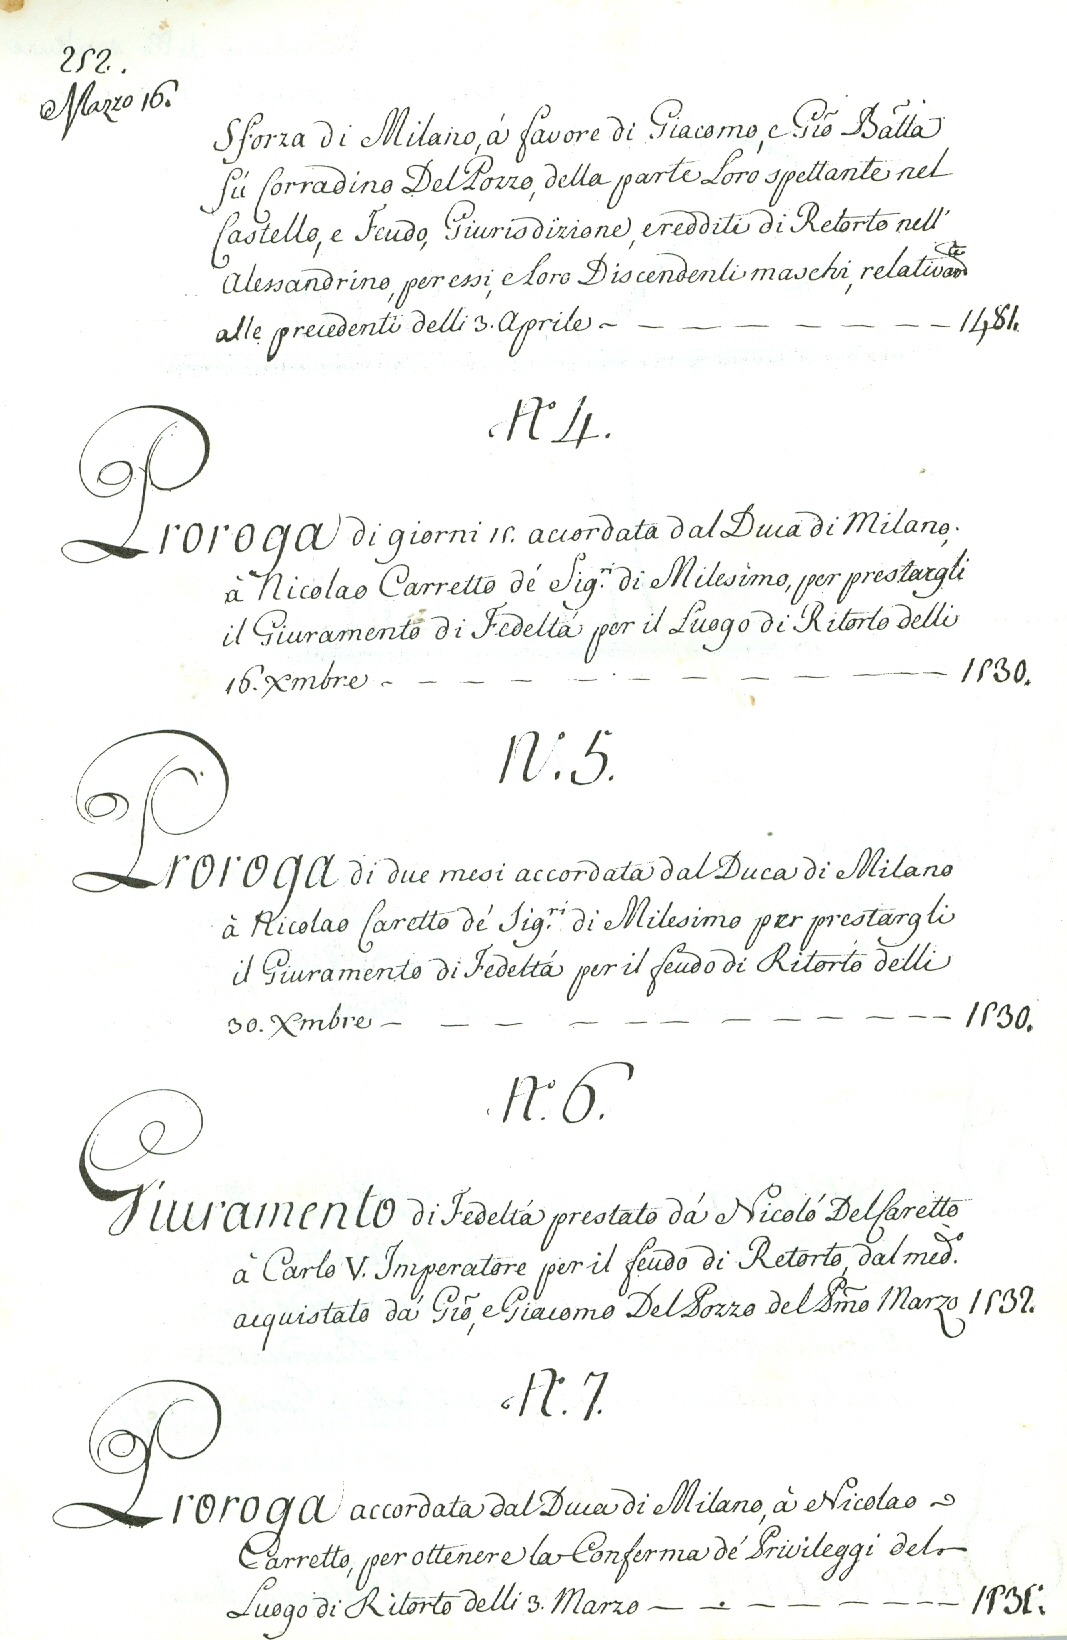 252.
Mazzo 16.
Sforza di Milano, à favore di Giacomo, e Gio Batta
fù Corradino Del Pozzo, della parte Loro spettante nel
Castello, e Feudo, Giurisdizione, e redditi di Retorto nell'
Alessandrino, per essi, e loro Discendenti maschi, relativamte
alle precedenti delli 3. Aprile - - - - - - - - 1481.
N.º 4.
Proroga di giorni 15. accordata dal Duca di Milano,
à Nicolao Carretto dé Sig.ri di Milesimo, per prestargli
il Giuramento di Fedeltà per il Luogo di Ritorto delli
16. Xmbre - - - - - - - - - - 1530.
N.º 5.
Proroga di due mesi accordata dal Duca di Milano
à Nicolao Caretto dé Sig.ri di Milesimo per prestargli
il Giuramento di Fedeltá per il feudo di Ritorto delli
30. Xmbre - - - - - - - - - - - 1530.
N.º 6.
Giuramento di Fedeltá prestato dá Nicoló Del Caretto
à Carlo V. Imperatore per il feudo di Retorto, dal medº.
acquistato dá Gio, e Giacomo Del Pozzo del Pmo Marzo 1532.
N.º 7.
Proroga accordata dal Duca di Milano, à Nicolao
Carretto, per ottenere la Conferma dé Privileggi del
Luogo di Ritorto delli 3. Marzo - - - - - - - 1535.